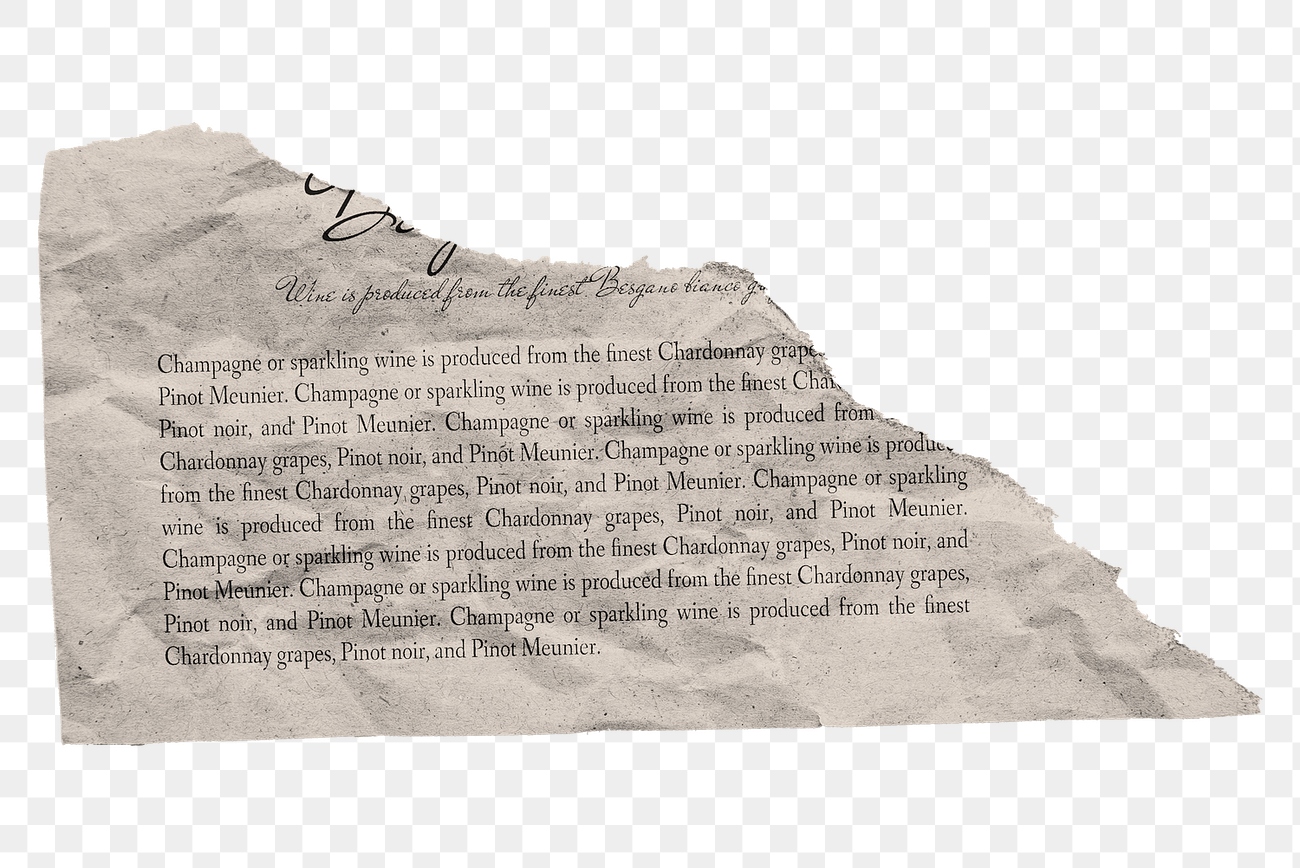 Wine is produced from the finest Besgano bianco
Champagne or sparkling wine is produced from the finest Chardonnay grape
Pinot Meunier. Champagne or sparkling wine is produced from the finest Char
Pinot noir, and Pinot Meunier. Champagne or sparkling wine is produced from
Chardonnay grapes, Pinot noir, and Pinot Meunier. Champagne or sparkling wine is produc
from the finest Chardonnay grapes, Pinot noir, and Pinot Meunier. Champagne or sparkling
wine is produced from the finest Chardonnay grapes, Pinot noir, and Pinot Meunier.
Champagne or sparkling wine is produced from the finest Chardonnay grapes, Pinot noir, and
Pinot Meunier. Champagne or sparkling wine is produced from the finest Chardonnay grapes,
Pinot noir, and Pinot Meunier. Champagne or sparkling wine is produced from the finest
Chardonnay grapes, Pinot noir, and Pinot Meunier.